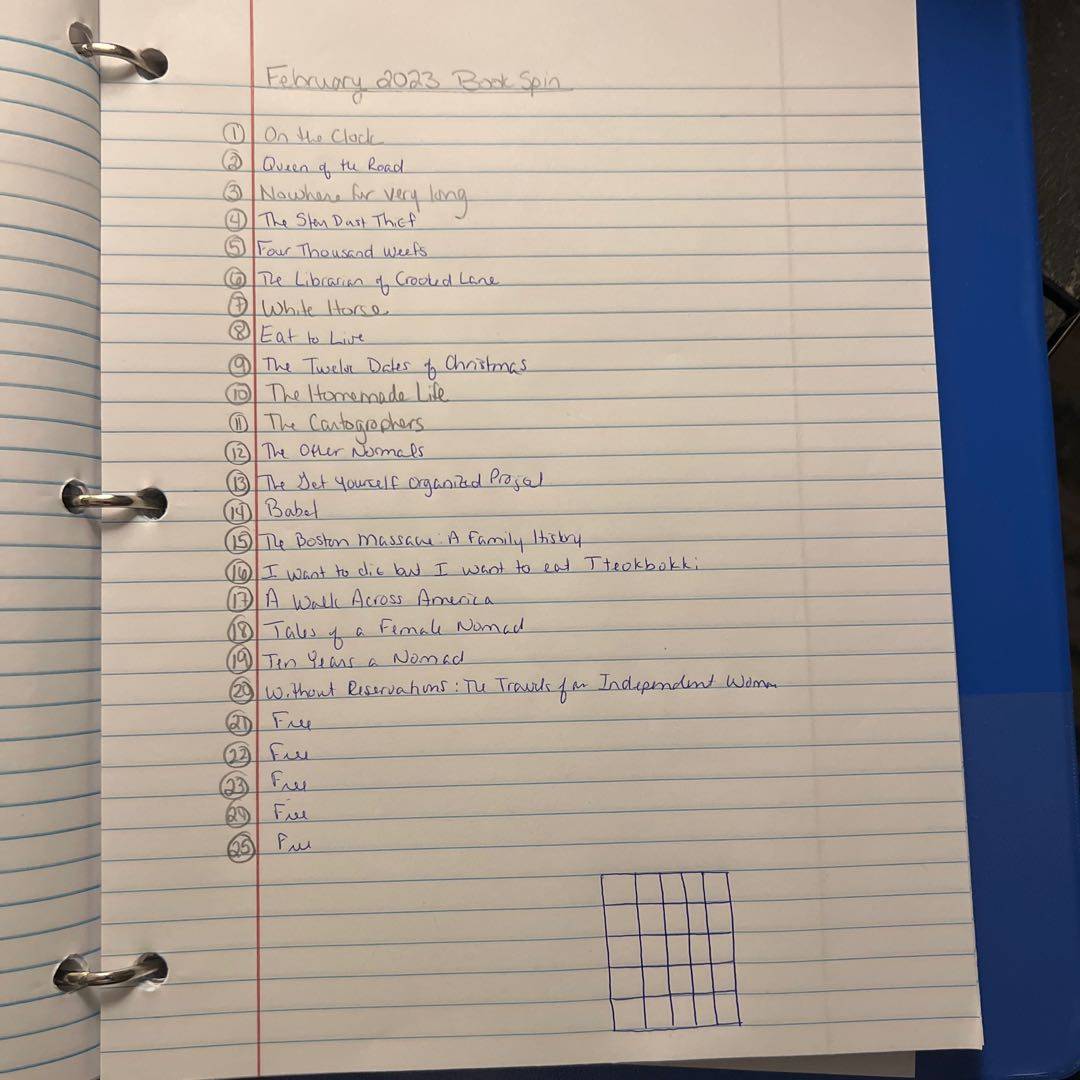 February 2023 Book Spin
① On the Clock
② Queen of the Road
③ Nowhere for very long
④ The Star Dust Thief
⑤ Four Thousand Weeks
⑥ The Librarian of Crooked Lane
⑦ White Horse
⑧ Eat to Live
⑨ The Twelve Dates of Christmas
⑩ The Homemade Life
⑪ The Cartographers
⑫ The Other Normals
⑬ The Get Yourself Organized Project
⑭ Babel
⑮ The Boston Massacre: A Family History
⑯ I want to die but I want to eat Tteokbokki
⑰ A Walk Across America
⑱ Tales of a Female Nomad
⑲ Ten Years a Nomad
⑳ Without Reservations: The Travels of an Independent Woman
㉑ Free
㉒ Free
㉓ Free
㉔ Free
㉕ Free